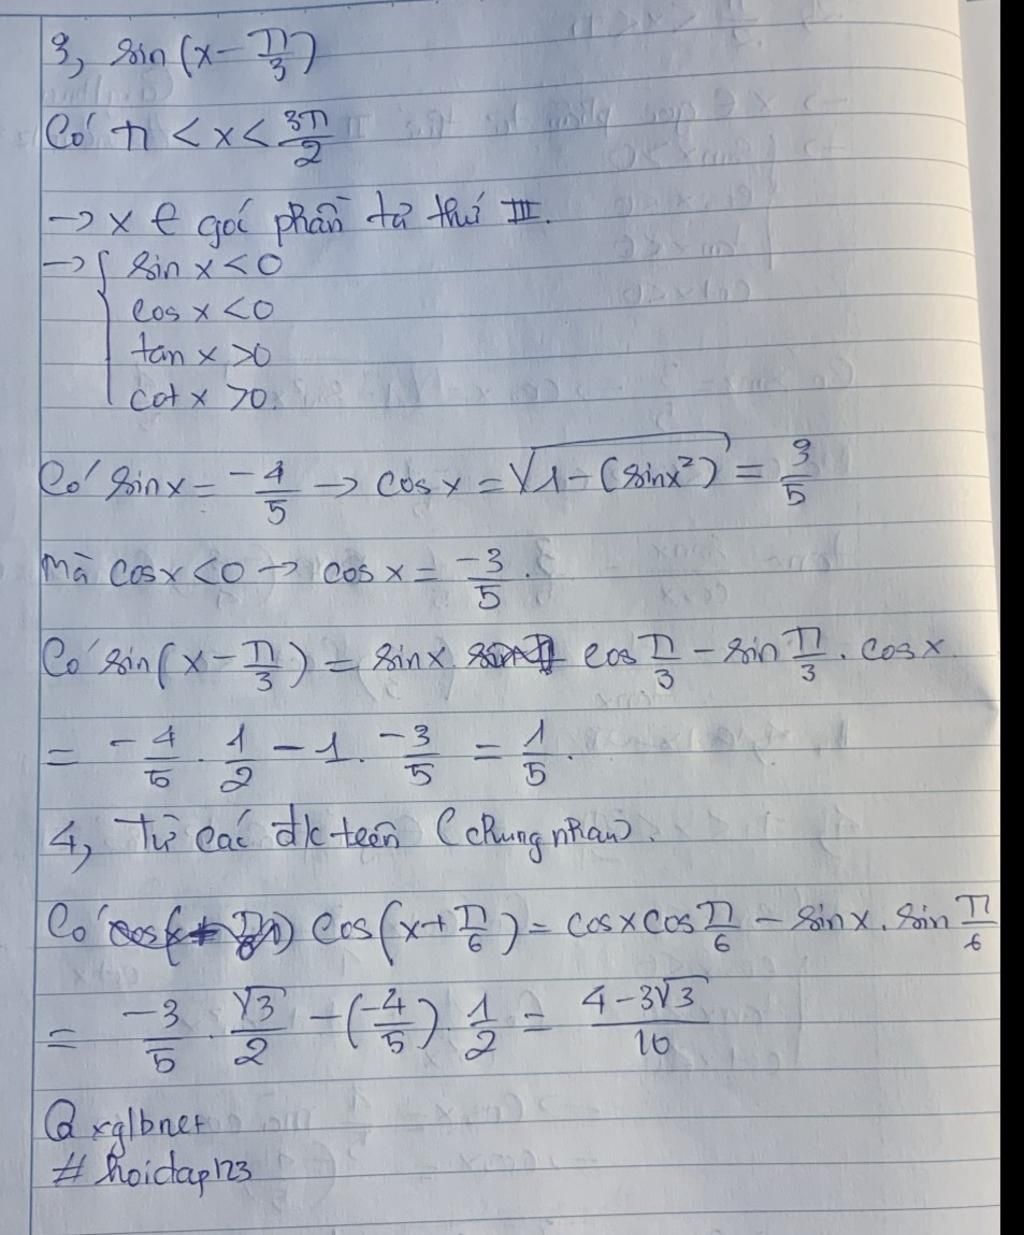 3, sin (x - π/3)
Có π < x < 3π/2
→ x ∈ goí phần tử thứ III.
→ { sin x < 0
cos x < 0
tan x > 0
cot x > 0.
Có sin x = -4/5 → cos x = √(1 - (sin x²)) = 3/5
Mà cos x < 0 → cos x = -3/5.
Có sin (x - π/3) = sin x. cos π/3 - sin π/3 . cos x.
= -4/5 . 1/2 - 1. -3/5 = 1/5.
4, Từ các đk teên (chung nhau).
Có cos (x + π/6) = cos x cos π/6 - sin x. sin π/6
= -3/5 . √3/2 - (-4/5) . 1/2 = (4 - 3√3)/10
@ xglbner
# hoidap123